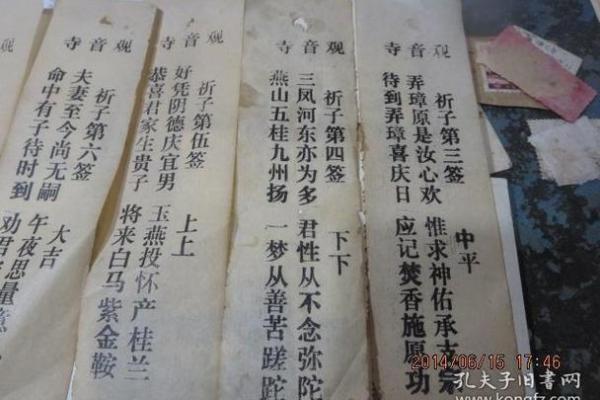 观音寺
祈子第三签 中平
弄璋原是汝心欢 惟求神佑承支宗
待到弄璋喜庆日 应记焚香施原功
观音寺
祈子第四签 下下
三凤河东亦为多 君性从不念弥陀
燕山五桂九州扬 一梦从善苦蹉跎
观音寺
祈子第伍签 上上
好凭阴德庆宜男 玉燕投怀产桂兰
恭喜君家生贵子 将来白马紫金鞍
观音寺
祈子第六签 大吉
夫妻至今尚无嗣 午夜思量
命中有子待时到 劝君
2014/06/15 17:46
孔夫子旧书网